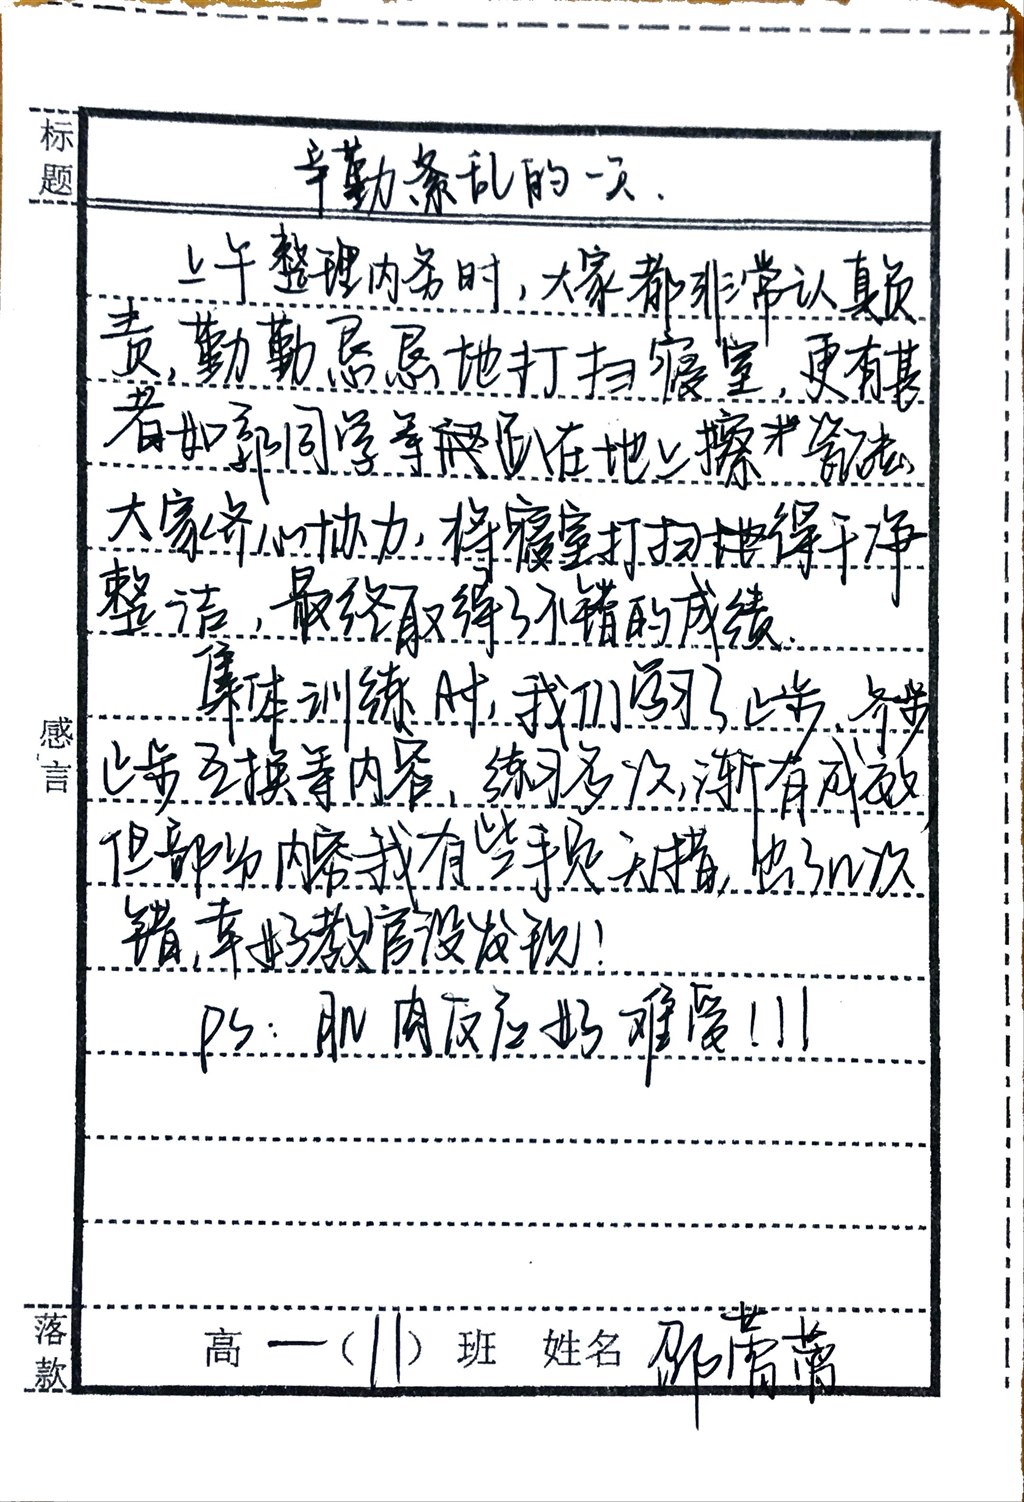 标题
辛勤紊乱的一天.
上午整理内务时,大家都非常认真负
责,勤勤恳恳地打扫寝室,更有甚
者如郭同学等趴在地上擦地
大家齐心协力,将寝室打扫地得干净
整洁,最终取得了不错的成绩.
集体训练时,我们学习了止步、齐步
止步互换等内容,练习多次,渐有成效
但部分内容我有些手足无措,出了几次
错,幸好教官没发现!
感言
ps:肌肉反应好难受!!!
落款
高一(11)班 姓名 邵蕾蕾